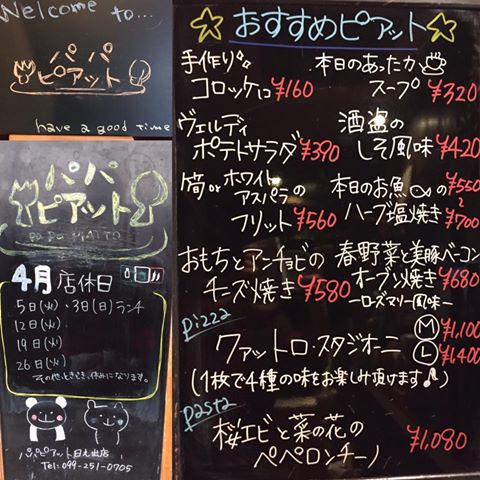 Welcome to...
パパ
ピアット
have a good time
パパ
ピアット
Pa Pa PIATTO
4月 店休日
5日(火)・3日(日)ランチ
12日(火)
19日(火)
26日(火)
その他、ときどき、休みになります。
パパピアット日之出店
Tel:099-251-0705
☆おすすめピアット☆
手作り
コロッケ1コ ¥160
本日のあったか
スープ ¥320
ヴェルディ
ポテトサラダ ¥390
酒盗の
しそ風味 ¥420
筍orホワイト
アスパラの
フリット ¥560
本日のお魚の ¥550
ハーブ塩焼き ~ ¥700
おもちとアンチョビの
チーズ焼き ¥580
春野菜と美豚ベーコン
オーブン焼き ¥680
ーローズマリー風味ー
pizza
クァットロ・スタジオーニ
Ⓜ ¥1,100
Ⓛ ¥1,400
(1枚で4種の味をお楽しみ頂けます♪)
pasta
桜エビと菜の花の
ペペロンチーノ ¥1,080